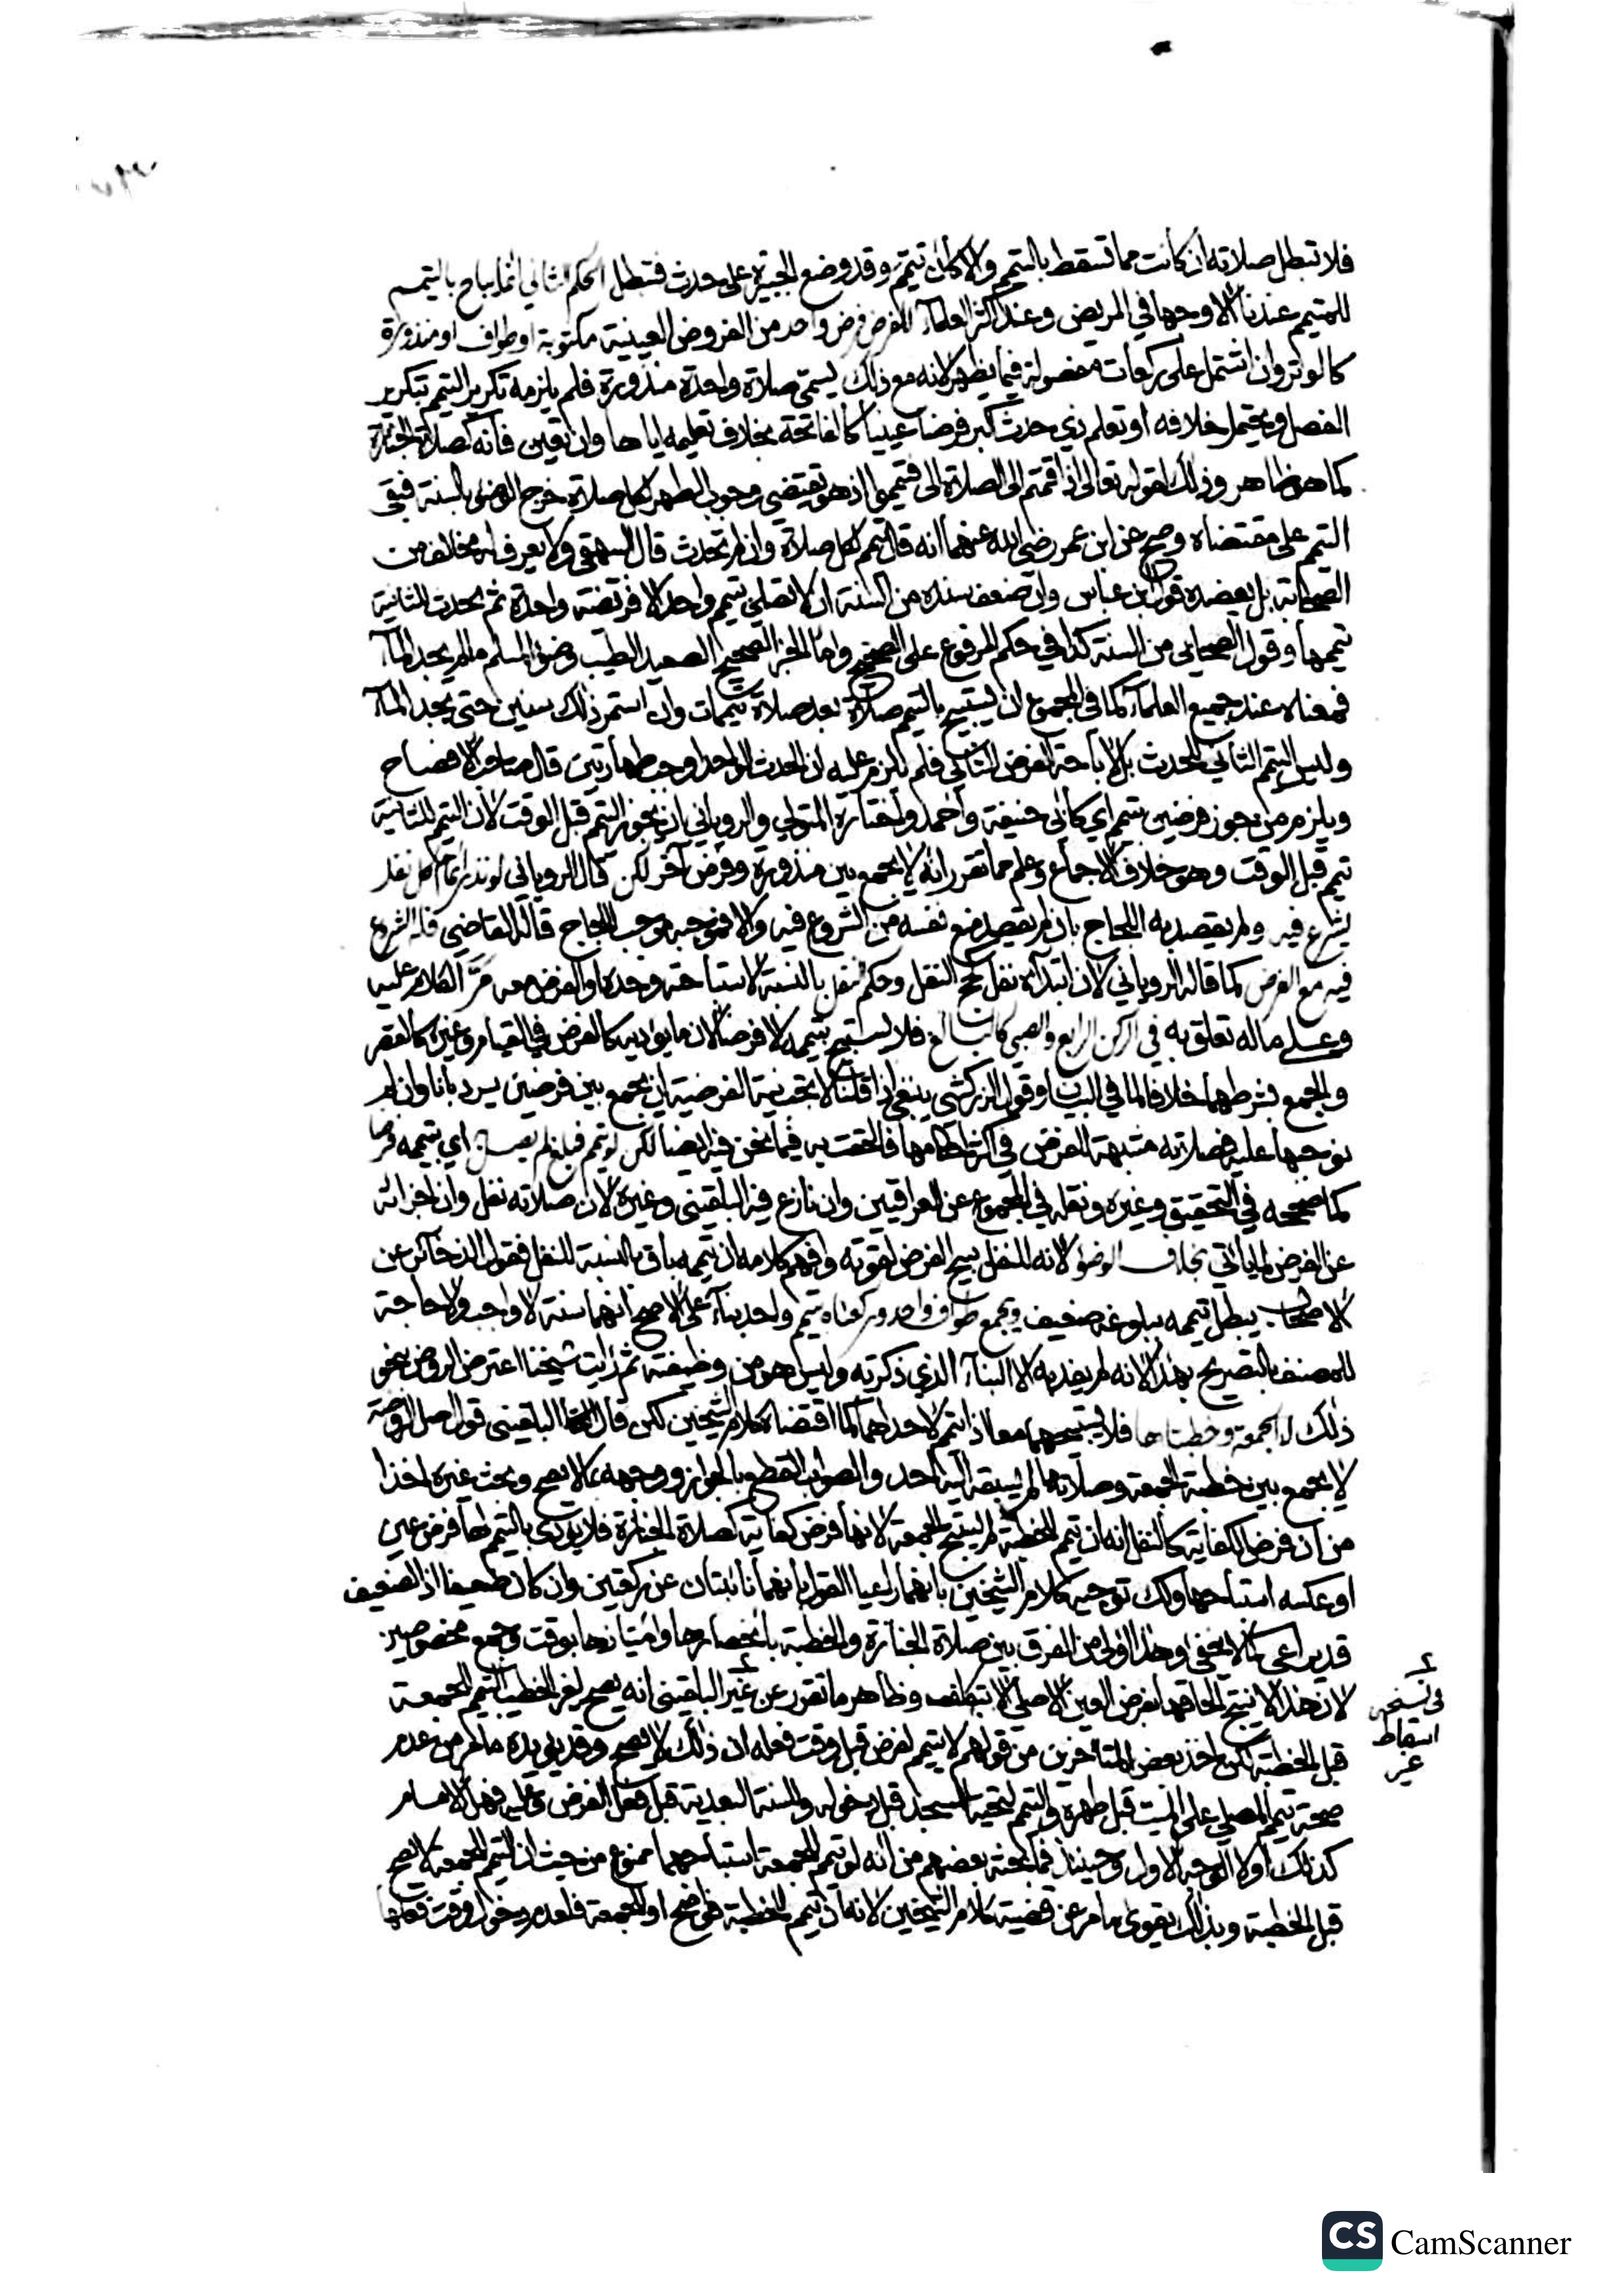 فلا تبطل صلاته ان كانت مما تسقط بالتيمم والا كان تيمم وقد وضع الجبيرة على حدث فتبطل الحكم الثاني انما يباح بالتيمم
للمتيمم عندنا الا وجها في المريض وعند اكثر العلماء للفرض فرض واحد من الفروض العينية مكتوبة او طواف او منذورة
كالوتر وان اشتمل على ركعات مفصولة فيما يظهر لانه مع ذلك يسمى صلاة واحدة منذورة فلم يلزمه تكرير التيمم بتكرير
الفصل ويحتمل خلافه او تعلم ذي حدث اكبر فرضا عينيا كالفاتحة بخلاف تعليمه اياها وان تعين فانه كصلاة الجنازة
كما هو ظاهر وذلك لقوله تعالى اذا قمتم الى الصلاة الى فتيمموا اذ هو يقتضي وجوب الطهر لكل صلاة خرج الوضوء بالسنة فبقي
التيمم على مقتضاه وصح عن ابن عمر رضي الله عنهما انه قال تيمم لكل صلاة وان لم تحدث قال البيهقي ولا يعرف له مخالف من
الصحابة بل يعضده قول ابن عباس وان ضعف سنده من السنة ان لا تصلي بتيمم واحد الا فريضة واحدة ثم يحدث للثانية
تيمما وقول الصحابي من السنة كذا في حكم المرفوع على الصحيح واما الخبر الصحيح الصعيد الطيب وضوء المسلم ما لم يجد الماء
فمعناه عند جميع العلماء كما في المجموع ان يستبيح بالتيمم صلاة بعد صلاة بتيممات وان استمر ذلك سنين حتى يجد الماء
وليس التيمم الثاني للحدث بل لاباحة الفرض الثاني فلم يلزم عليه ان الحدث الواحد اوجب طهارتين قال صاحب الافصاح
ويلزم من يجوز فرضين بتيمم اي كابي حنيفة واحمد واختاره المتولي والروياني ان يجوز التيمم قبل الوقت لان التيمم للثانية
تيمم قبل الوقت وهو خلاف الاجماع وعلم مما تقرر انه لا يجمع بين منذورة وفرض آخر لكن قال الروياني لو نذر اتمام كل نفل
يشرع فيه ولم يقصد به اللجاج بان لم يقصد منع نفسه من الشروع فيه والا فموجبه موجب اللجاج قاله القاضي فله الشروع
فيه مع الفرض كما قاله الروياني لان ابتداءه نفل كحج النفل وحكم نفل بالنسبة لاستباحته وحده او الفرض معه مر الكلام عليه
وعلى ما له تعلق به في الركن الرابع والصبي كالبالغ فلا يستبيح بتيممه الا فرضا لان ما يؤديه كالفرض في القيام وغيره كالقصر
والجمع بشرطهما خلافا لما في البيان وقول الزركشي ينبغي اذا قلنا لا تجب نية الفرضية ان يجمع بين فرضين يرد بانا وان لم
نوجبها عليه فصلاته مشبهة الفرض في اكثر احكامها فالحقت به فيما نحن فيه ايضا لكن لو تيمم فبلغ لم يصل اي بتيممه فرضا
كما صححه في التحقيق وغيره ونقله في المجموع عن العراقيين وان نازع فيه البلقيني وغيره لان صلاته نفل وان اجزأته
عن الفرض لما يأتي بخلاف الوضوء لانه للنفل يبيح الفرض لقوته وافهم كلامه ان تيممه باق بالنسبة للنفل فقول الذخائر عن
الاصحاب يبطل تيممه ببلوغه ضعيف ويجمع طواف واحد وركعتاه بتيمم واحد بناء على الاصح انهما سنة لا واجب ولا حاجة
للمصنف بالتصريح بهذا لانه لم يفد به الا البناء الذي ذكرته وليس هو من وظيفته ثم رايت شيخنا اعترض الروض بنحو
ذلك لا جمعة وخطبتاها فلا يستبيحهما معا اذا تيمم لاحداهما كما اقتضاه كلام الشيخين لكن قال البلقيني قول اصل الروضة
لا يجمع بين خطبة الجمعة وصلاتها لم يسبقه اليه احد والصواب القطع بالجواز ووجهه بما لا يصح وبحث غيره اخذا
من ان فرض الكفاية كالنفل انه ان تيمم للخطبة لم يستبح الجمعة لانها فرض كفاية كصلاة الجنازة فلا يؤدى بالتيمم لها فرض عين
او عكسه استباحها ولك توجيه كلام الشيخين بانهما راعيا القول بانهما نائبتان عن ركعتين وان كان ضعيفا اذ الضعيف
قد يراعى كما لا يخفى وهذا اولى من الفرق بين صلاة الجنازة والخطبة بانحصارها وامتيازها بوقت وجمع مخصوصين
لان هذا لا ينتج الحاقها بفرض العين الاصلي الا بتكلف وظاهر ما تقرر عن غير البلقيني انه يصح لغير الخطيب التيمم للجمعة
قبل الخطبة لكن اخذ بعض المتأخرين من قولهم لا يتيمم لفرض قبل وقت فعله ان ذلك لا يصح وقد يؤيده ما مر من عدم
صحة تيمم المصلي على الميت قبل طهره والتيمم لتحية المسجد قبل دخوله والسنة البعدية قبل فعل الفرض وعليه فهل الامام
كذلك او لا الوجه الاول وحينئذ فما بحثه بعضهم من انه لو تيمم للجمعة استباحهما ممنوع من حيث ان التيمم للجمعة لا يصح
قبل الخطبة وبذلك يقوى ما مر عن قضية كلام الشيخين لانه ان تيمم للخطبة فواضح او للجمعة فلعدم دخول وقت فعلها
في نسخه
اسقاط
غير
CS CamScanner